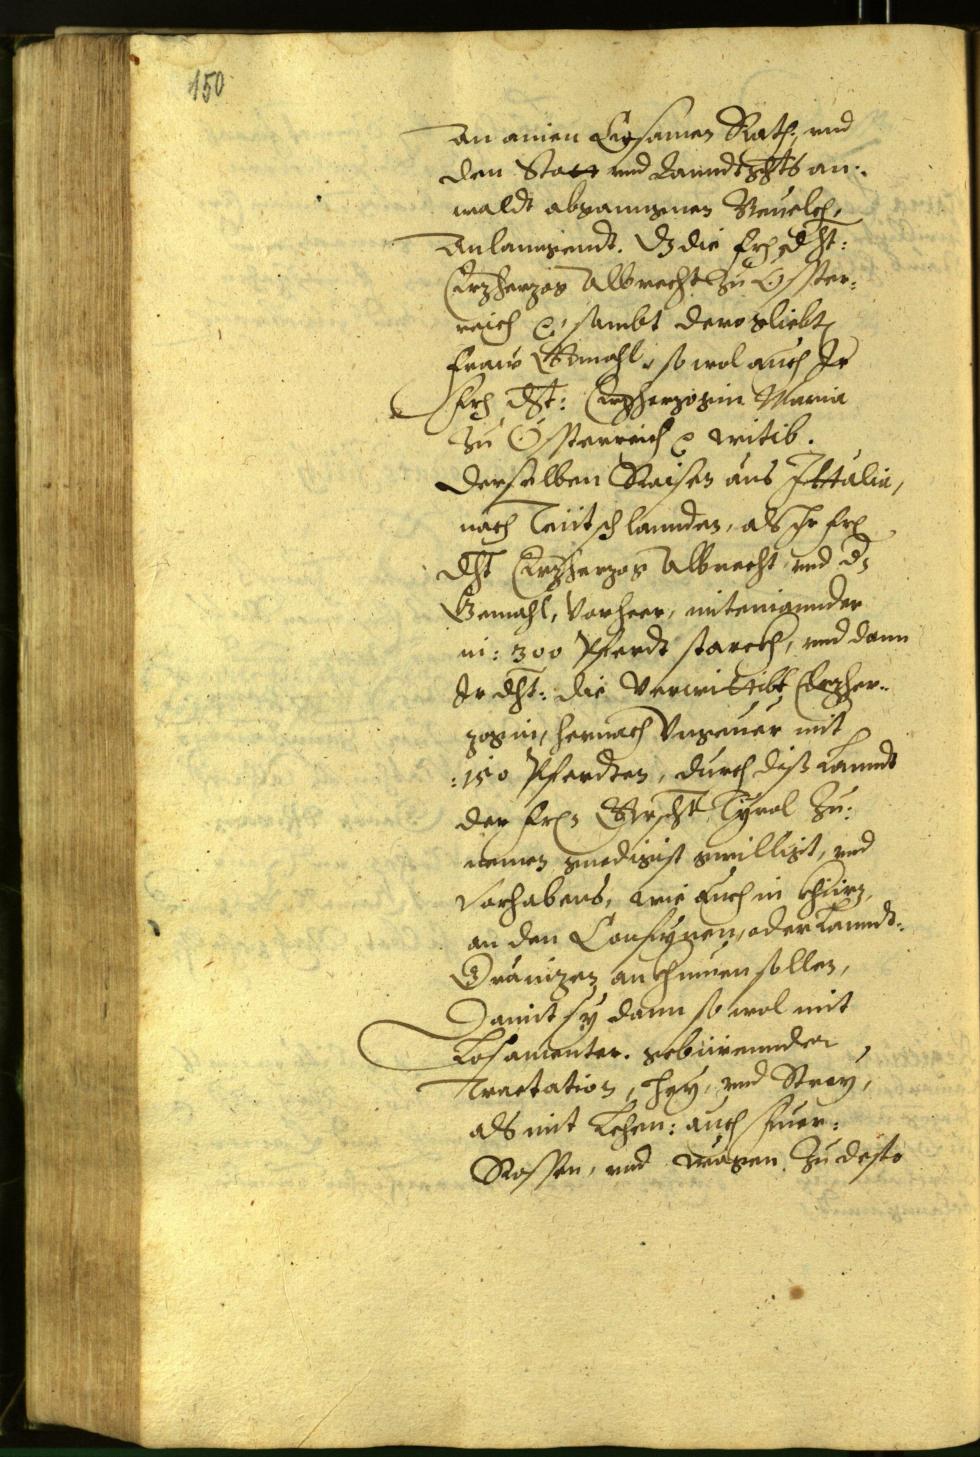 150
an ainen Ersamen Rath, vnd
den Statt vnd Lanndtghts an:
waldt abganngnen Beuelch,
Anlanngendt. dz die frh: dht:
Erzherzog Albrecht Zu Össter:
reich &c. sambt dero geliebt
Fraw Gemahl, so wol auch Ir
frh: dht: Erzherzogin Maria
Zu Össterreich &c. witib.
derselben Raisen aus Ittalia,
nach Teütschlannden, als Ir frh
dht Erzherzog Albrecht vnd dz
Gemahl, Vorheer, miteinannder
in: 300 Pferdt starckh, vnd dann
Ir dht: die Verwittibt Erzher:
zogin, hernach Vngeuer mit
:150 Pferdten, durch diß Lanndt
der frn Grfscht Tyrol Zu:
nemen gnedigist gwilligt, vnd
Vorhabens, wie auch in
an den Confynen, oder Lanndt:
Gränizen ankhumen sollen,
Damit sy dann so wol mit
Losamenter. gebürennder
Tractation, Hey, vnd Stroy,
als mit Lehen: auch Fuer:
Rossen, vnd wägen Zu desto